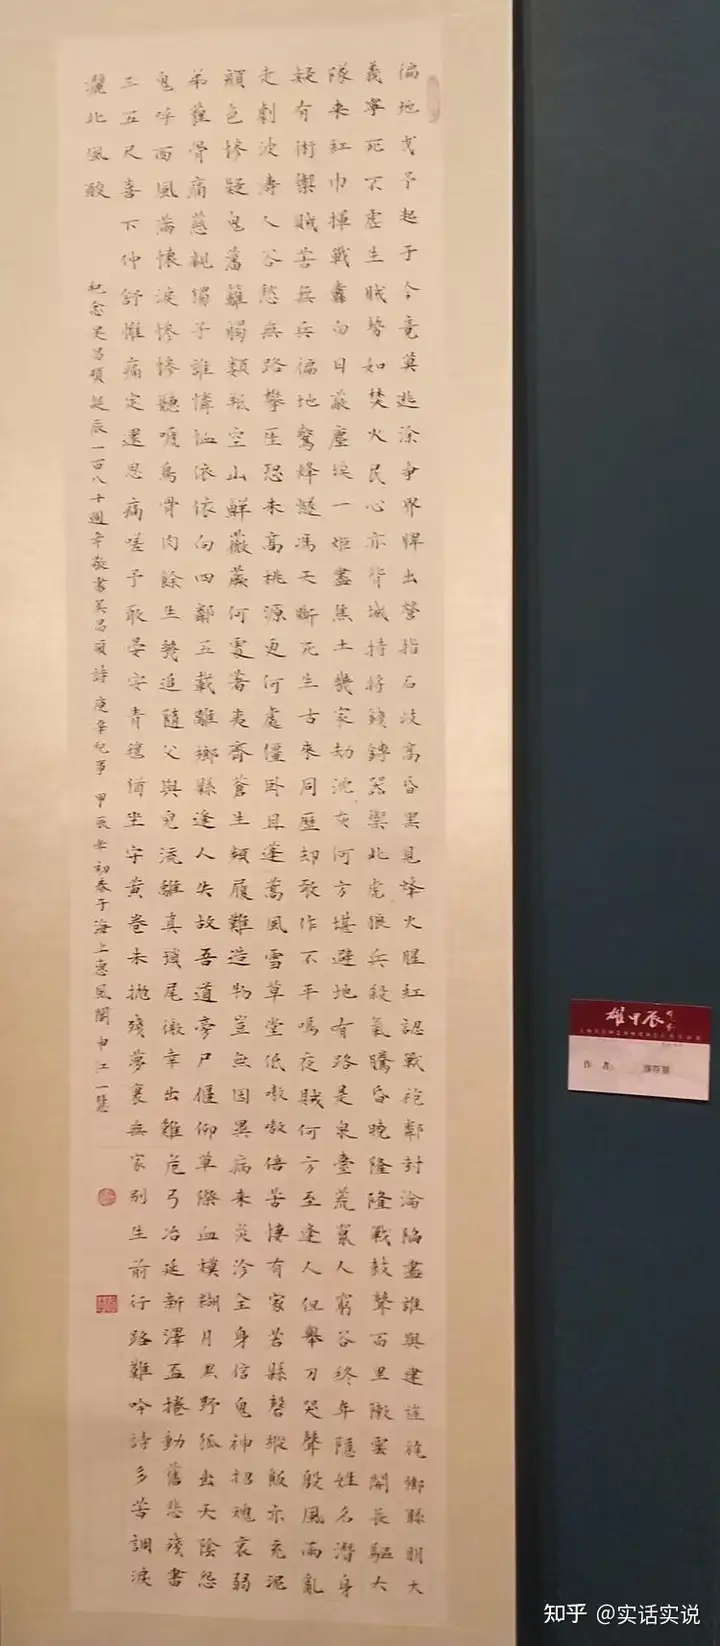 徧地戈予起于今竟莫逃涂争界牌出營指石歧高昏黑見烽火腥紅認戰袍鄰封淪陷盡誰與建旌旄鄉聯明大
義寧死不虛生賊勢如焚火民心亦背城持將錢鎛器禦北虎狼兵殺氣騰昏曉隆隆戰鼓聲百里陳雲開長驅大
隊來紅巾揮戰纛白日蔽塵埃一炬盡焦土幾家劫沈灰何方堪避地有路是泉臺荒景人窮谷終年隱姓名潛身
疑有術禦賊苦無兵徧地驚烽燧馮天斷死生古來同歷却敢作不平鳴夜賊何方至逢人但舉刀哭聲殷風雨亂
走劇波濤人谷愁無路攀厓恐未高桃源更何處僵卧且蓬蒿風雪草堂低嗷嗷倍苦悽有家苦縣磬縱飯亦充泥
顏色慘疑鬼舊雛獨類羝空山鮮薇蕨何處著夷齊蒼生頻履難造物豈無因異病來炎沴全身信鬼神招魂哀弱
弟蕹骨痛慈親獨子誰憐恤依依向四鄰五載離鄉縣逢人失故吾道旁尸偃仰草際血模糊月黑野狐出天陰怨
鬼呼西風滿懷淚慘慘聽嗁烏骨肉餘生幾追隨父與兒流離真瑣尾徼幸出難危弓冶延新澤盃捲動舊悲殘書
三五尺喜下仲舒帷痛定還思痛嗟予敢晏安青氊猶坐守黃卷未拋殘夢裏無家別生前行路難吟詩多苦調淚
灑北風酸
紀念吳昌碩誕辰一百八十週年敬書吳昌碩詩庚辛紀事甲辰年初春于海上惠風閣申江一慧
雄甲辰
作者：
知乎 @实话实说